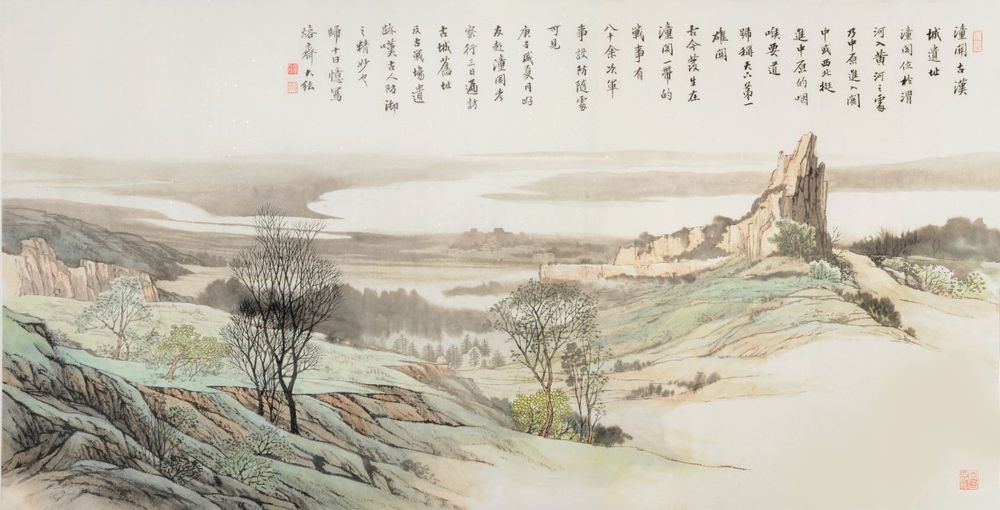 潼關古漢
城遺址
潼關位於渭
河入黃河之處
乃中原進入關
中或西北挺
進中原的咽
喉要道
稱天下第一
雄關
古今發生在
潼關一帶的
戰事有
八十余次軍
事設防隨處
可見
庚子盛夏同好
友赴潼關考
察行三日遍訪
古城舊址
及古戰場遺
跡嘆古人防御
之精妙也
歸十日憶寫
齋大